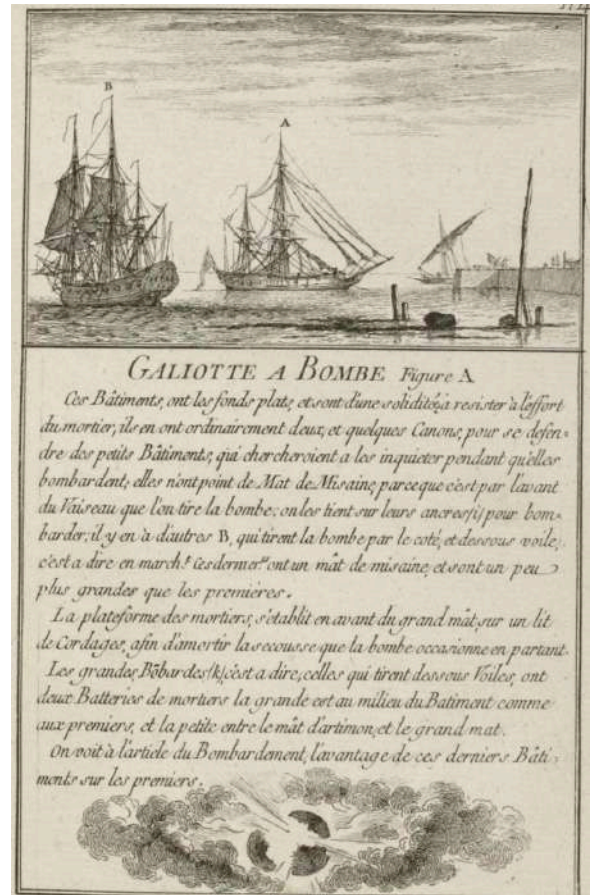 B
A
GALIOTTE A BOMBE Figure A
Ces Bâtiments, ont les fonds plats, et sont d'une solidité, à resister à l'effort
du mortier, ils en ont ordinairement deux, et quelques Canons, pour se defen-
dre des petits Bâtiments, qui chercheroient a les inquieter pendant qu'elles
bombardent; elles n'ont point de Mat de Misaine, parce que c'est par l'avant
du Vaiseau que l'on tire la bombe; on les tient sur leurs ancres (i) pour bom-
barder; il y en à d'autres B, qui tirent la bombe par le coté, et dessous voile,
c'est a dire en march.t Ces dernier.rs ont un mât de misaine, et sont un peu
plus grandes que les premières.
La plateforme des mortiers, s'établit en avant du grand mât, sur un lit
de Cordages, afin d'amortir la secousse que la bombe occasionne en partant.
Les grandes Bōbardes (k) c'ést a dire, celles qui tirent dessous Voiles, ont
deux Batteries de mortiers la grande est au milieu du Batiment comme
aux premiers, et la petite entre le mât d'artimon, et le grand mat.
On voit à l'article du Bombardement, l'avantage de ces derniers Bâti-
ments sur les premiers.